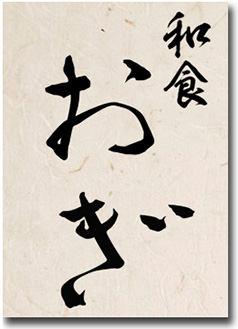 和食
おぎ